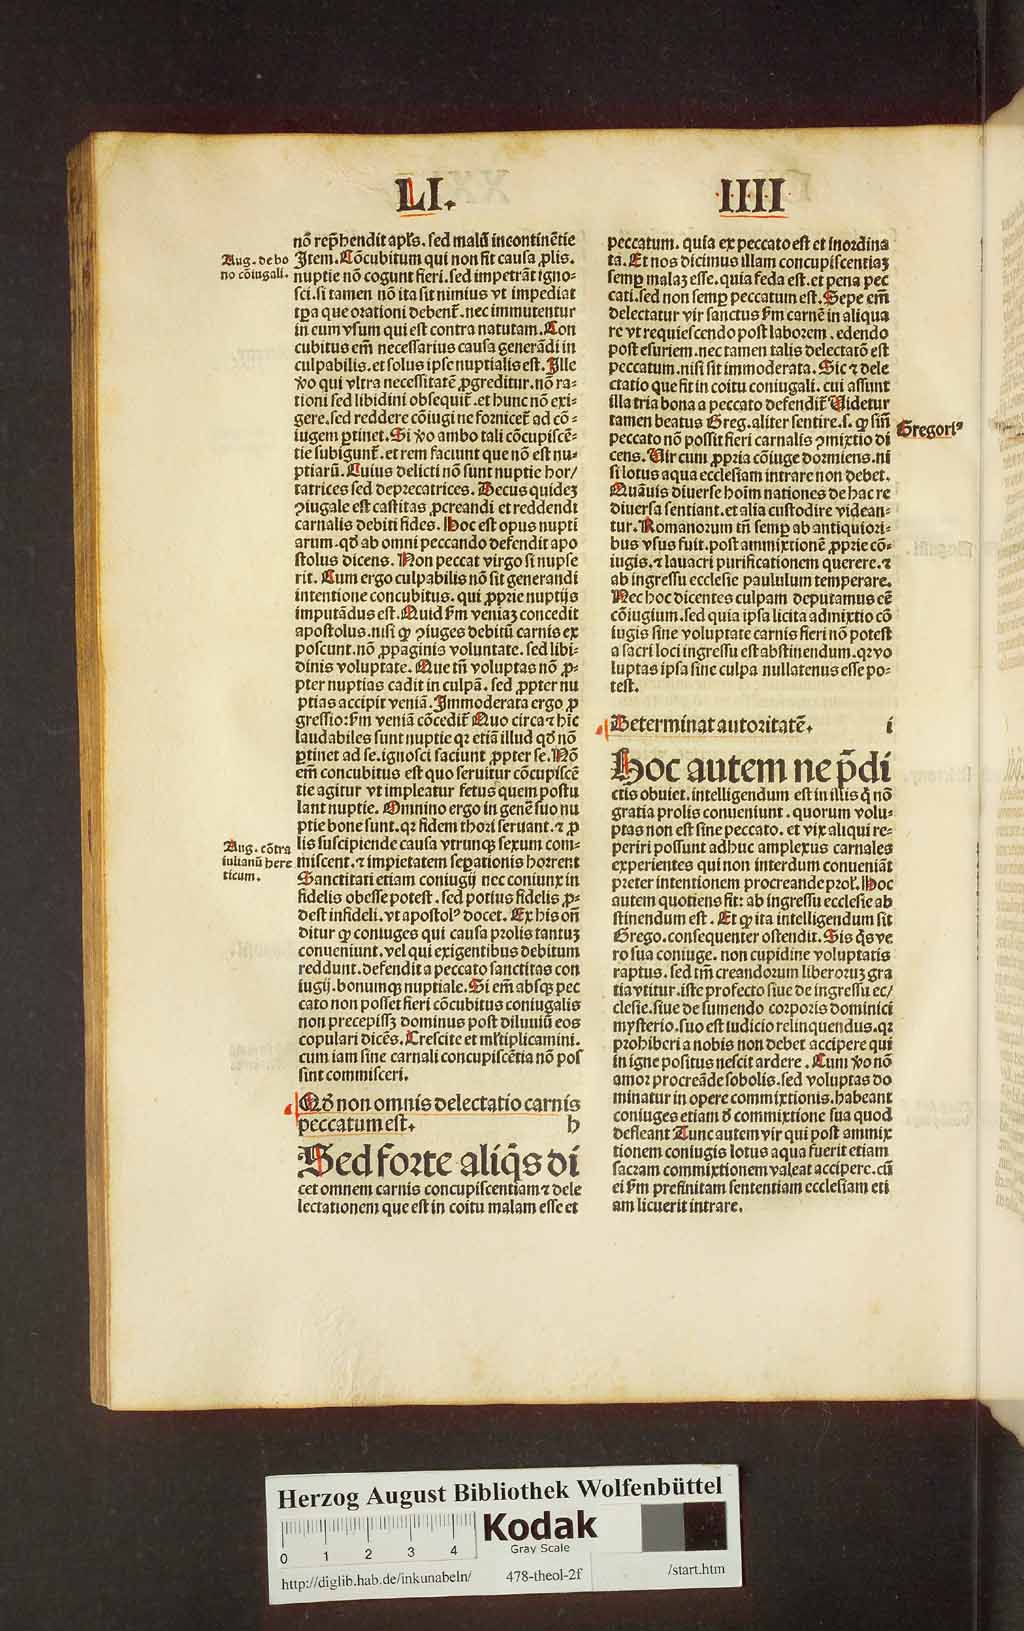 LI.
IIII
nō rep̄hendit apl's. sed malū incontinētie
Aug. de bo
no cōiugali.
Item. Cōcubitum qui non fit causa ꝓlis.
nuptie nō cogunt fieri. sed impetrāt igno-
sci. si tamen nō ita sit nimius vt impediat
tp̄a que orationi debent̄. nec immutentur
in eum vsum qui est contra naturam. Con
cubitus em̄ necessarius causa generādi in
culpabilis. et solus ipse nuptialis est. Ille
v̄o qui vltra necessitatē ꝓgreditur. nō ra-
tioni sed libidini obsequit̄. et hunc nō exi-
gere. sed reddere cōiugi ne fornicet̄ ad cō-
iugem ꝑtinet. Si v̄o ambo tali cōcupiscē-
tie subigunt̄. et rem faciunt que nō est nu-
ptiarū. Cuius delicti nō sunt nuptie hor/
tatrices sed deprecatrices. Decus quidez
ꝯiugale est castitas ꝓcreandi et reddendi
carnalis debiti fides. Hoc est opus nupti
arum. qd̄ ab omni peccando defendit apo
stolus dicens. Non peccat virgo si nupse
rit. Cum ergo culpabilis nō sit generandi
intentione concubitus. qui ꝓprie nuptijs
imputādus est. Quid ẜm veniaz concedit
apostolus. nisi ꝙ ꝯiuges debitū carnis ex
poscunt. nō ꝓpaginis voluntate. sed libi-
dinis voluptate. Que tn̄ voluptas nō ꝓ-
pter nuptias cadit in culpā. sed ꝓpter nu
ptias accipit veniā. Immoderata ergo ꝓ
gressio: ẜm veniā cōcedit̄ Quo circa ⁊ hīc
laudabiles sunt nuptie qꝛ etiā illud qd̄ nō
ꝑtinet ad se. ignosci faciunt ꝓpter se. Nō
em̄ concubitus est quo seruitur cōcupiscē
tie agitur vt impleatur fetus quem postu
lant nuptie. Omnino ergo in genē suo nu
ptie bone sunt. qꝛ fidem thori seruant. ⁊ ꝓ
Aug. cōtra
iulianū here
ticum.
lis suscipiende causa vtrunqꝫ sexum com-
miscent. ⁊ impietatem seꝑationis horrent
Sanctitati etiam coniugij nec coniunx in
fidelis obesse potest. sed potius fidelis ꝓ-
dest infideli. vt apostol⁹ docet. Ex his on̄
ditur ꝙ coniuges qui causa prolis tantuz
conueniunt. vel qui exigentibus debitum
reddunt. defendit a peccato sanctitas con
iugij. bonumqꝫ nuptiale. Si em̄ absqꝫ pec
cato non posset fieri cōcubitus coniugalis
non precepissꝫ dominus post diluuiū eos
copulari dicēs. Crescite et ml'tiplicamini.
cum iam sine carnali concupiscētia nō pos
sint commisceri.
Qd̄ non omnis delectatio carnis
peccatum est.
h
Sed forte aliq̄s di
cet omnem carnis concupiscentiam ⁊ dele
lectationem que est in coitu malam esse et
peccatum. quia ex peccato est et inordina
ta. Et nos dicimus illam concupiscentiaz
semꝑ malaz esse. quia feda est. et pena pec
cati. sed non semꝑ peccatum est. Sepe em̄
delectatur vir sanctus ẜm carnē in aliqua
re vt requiescendo post laborem. edendo
post esuriem. nec tamen talis delectatō est
peccatum. nisi sit immoderata. Sic ⁊ dele
ctatio que fit in coitu coniugali. cui assunt
illa tria bona a peccato defendit̄ Videtur
tamen beatus Greg. aliter sentire. s. ꝙ sin̄
Gregori⁹
peccato nō possit fieri carnalis ꝯmixtio di
cens. Vir cum ꝓpria cōiuge dormiens. ni
si lotus aqua ecclesiam intrare non debet.
Quāuis diuerse hoim nationes de hac re
diuersa sentiant. et alia custodire videan-
tur. Romanorum tn̄ semꝑ ab antiquiori-
bus vsus fuit. post ammixtionē ꝓprie cō-
iugis. ⁊ lauacri purificationem querere. ⁊
ab ingressu ecclesie paululum temperare.
Nec hoc dicentes culpam deputamus eē
cōiugium. sed quia ipsa licita admixtio cō
iugis sine voluptate carnis fieri nō potest
a sacri loci ingressu est abstinendum. qꝛ vo
luptas ipsa sine culpa nullatenus esse po-
test.
Determinat autoritatē.
i
Hoc autem ne p̄di
ctis obuiet. intelligendum est in illis q̄ nō
gratia prolis conueniunt. quorum volu-
ptas non est sine peccato. et vix aliqui re-
periri possunt adhuc amplexus carnales
experientes qui non interdum conueniāt
preter intentionem procreande prol'. Hoc
autem quotiens fit: ab ingressu ecclesie ab
stinendum est. Et ꝙ ita intelligendum sit
Grego. consequenter ostendit. Sis q̄s ve
ro sua coniuge. non cupidine voluptatis
raptus. sed tm̄ creandorum liberoruz gra
tia vtitur. iste profecto siue de ingressu ec/
clesie. siue de sumendo corporis dominici
mysterio. suo est iudicio relinquendus. qꝛ
prohiberi a nobis non debet accipere qui
in igne positus nescit ardere. Cum v̄o nō
amor procreāde sobolis. sed voluptas do
minatur in opere commixtionis. habeant
coniuges etiam d̄ commixtione sua quod
defleant Tunc autem vir qui post ammix
tionem coniugis lotus aqua fuerit etiam
sacram commixtionem valeat accipere. cū
ei ẜm prefinitam sententiam ecclesiam eti
am licuerit intrare.
Herzog August Bibliothek Wolfenbüttel
Kodak
Gray Scale
0 1 2 3 4
http://diglib.hab.de/inkunabeln/ 478-theol-2f /start.htm